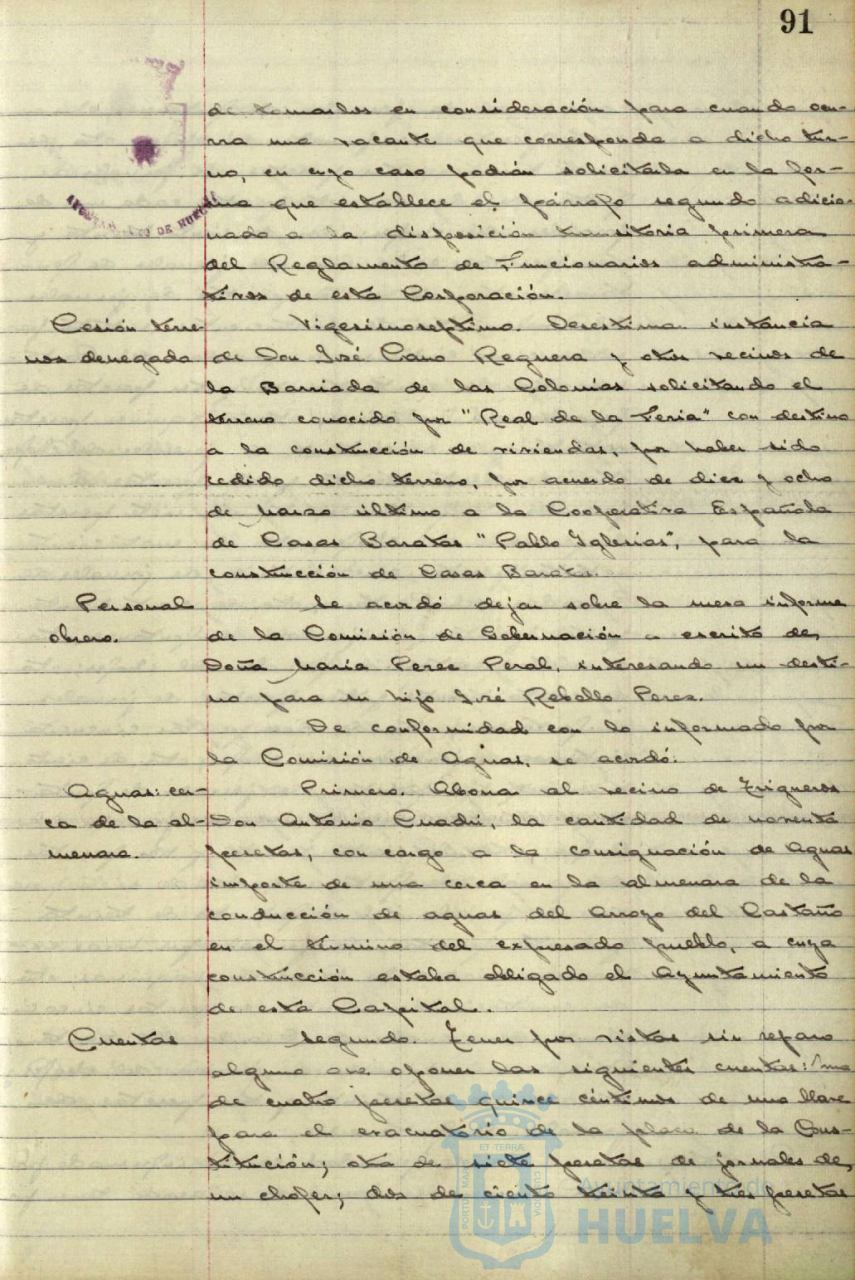 91
de tomarlos en consideración para cuando ocu-
rra una vacante que corresponda a dicho tur-
no, en cuyo caso podrán solicitarla en la for-
ma que establece el párrafo segundo adicio-
nado a la disposición transitoria primera
del Reglamento de Funcionarios administra-
tivos de esta Corporación.
Cesión terre-
nos denegada
Vigesimoseptimo. Desestimar instancia
de Don José Cano Reguera y otros vecinos de
la Barriada de las Colonias solicitando el
terreno conocido por "Real de la Feria" con destino
a la construcción de viviendas, por haber sido
cedido dicho terreno, por acuerdo de diez y ocho
de Marzo último a la Cooperativa Española
de Casas Baratas "Pablo Iglesias", para la
construcción de Casas Baratas.
Personal
obrero.
Se acordó dejar sobre la mesa informe
de la Comisión de Gobernación a escrito de
Doña María Perez Peral, interesando un desti-
no para su hijo José Rebollo Perez.
De conformidad con lo informado por
la Comisión de Aguas, se acordó:
Aguas: cer-
ca de la al-
menara.
Primero. Abonar al vecino de Trigueros
Don Antonio Cuadri, la cantidad de noventa
pesetas, con cargo a la consignación de Aguas
importe de una cerca en la almenara de la
conducción de aguas del Arroyo del Castaño
en el termino del expresado pueblo, a cuya
construcción estaba obligado el Ayuntamiento
de esta Capital.
Cuentas
Segundo. Tener por vistas sin reparo
alguno que oponer las siguientes cuentas: Una
de cuatro pesetas quince céntimos de una llave
para el evacuatorio de la plaza de la Cons-
titución; otra de siete pesetas de jornales de
un chofer; dos de ciento treinta y tres pesetas
AYUNTAMIENTO DE HUELVA
Ayuntamiento de
HUELVA